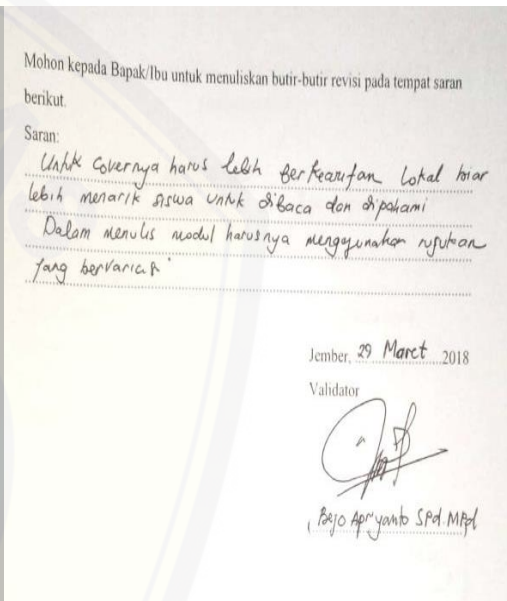 Mohon kepada Bapak/Ibu untuk menuliskan butir-butir revisi pada tempat saran
berikut.
Saran:
Untuk covernya harus lebih Berkearifan Lokal biar
lebih menarik siswa untuk dibaca dan dipahami
Dalam menulis modul harusnya menggunakan rujukan
yang bervariasi
Jember, 29 Maret 2018
Validator
Bejo Apriyanto SPd. MPd